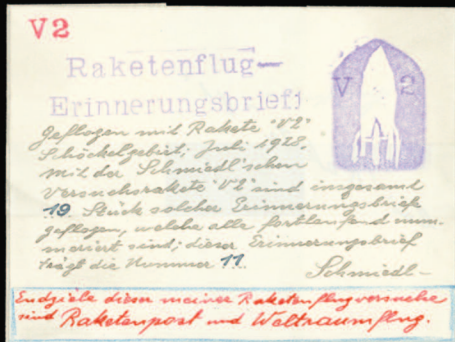 V2
Raketenflug-
Erinnerungsbrief:
V 2
Geflogen mit Rakete "V2"
Schöckelgebiet; Juli 1928.
Mit der Schmiedl'schen
Versuchsrakete "V2" sind insgesamt
19 Stück solcher Erinnerungsbriefe
geflogen, welche alle fortlaufend num-
meriert sind; dieser Erinnerungsbrief
trägt die Nummer 11.
Schmiedl-
Endziele dieser meiner Raketenflugversuche
sind Raketenpost und Weltraumflug.